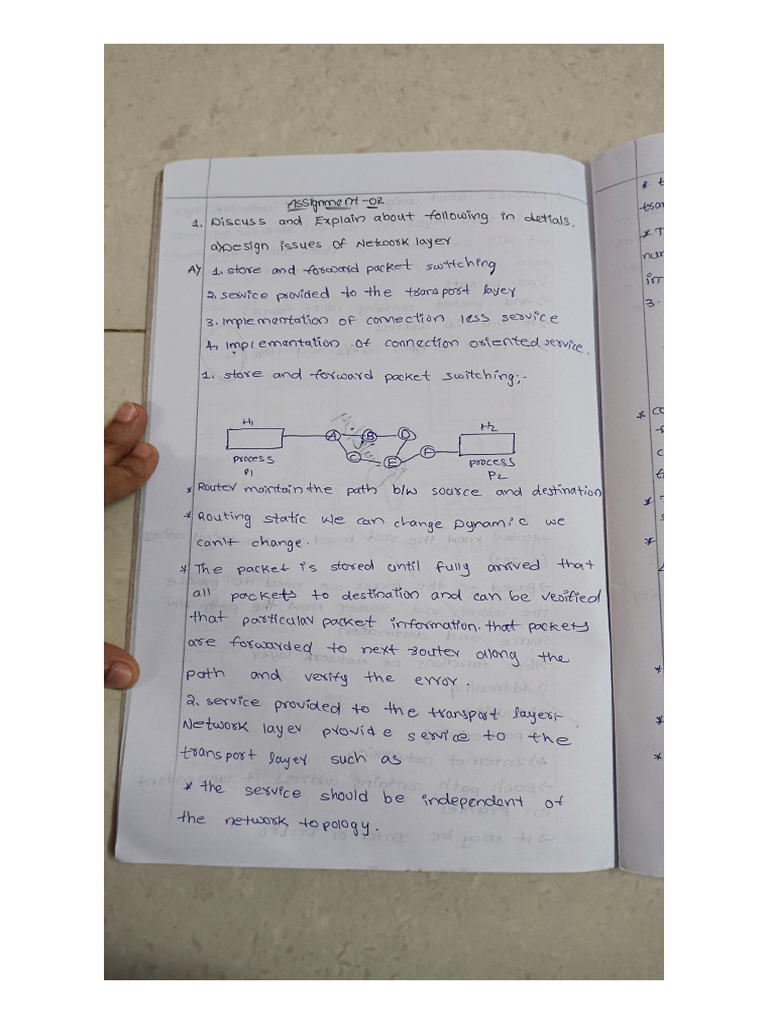 Assignment-02
1. Discuss and Explain about following in detials.
a) Design issues of Network layer
A) 1. store and forward packet switching
2. service provided to the transport layer
3. implementation of connection less service
4. implementation of connection oriented service.
1. store and forward packet switching:-
H1
H2
A B D
C E F
process
P1
process
P2
* Router maintain the path b/w source and destination
* Routing static we can change Dynamic we
can't change.
* The packet is stored until fully arrived that
all packets to destination and can be verified
that particular packet information. that packets
are forwarded to next router along the
path and verify the error.
2. service provided to the transport layer:-
Network layer provide service to the
transport layer such as
* the service should be independent of
the network topology.